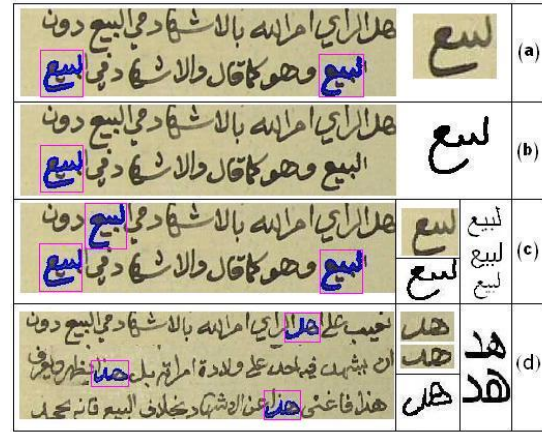 هل الراي امر الله بالاشهاد في البيع دون
البيع وهو كما قال والاشهاد في البيع
لبيع
(a)
هل الراي امر الله بالاشهاد في البيع دون
البيع وهو كما قال والاشهاد في البيع
لبيع
(b)
هل الراي امر الله بالاشهاد في البيع دون
البيع وهو كما قال والاشهاد في البيع
لبيع
لبيع
لبيع
لبيع
لبيع
(c)
على اهل الراي امر الله بالاشهاد في البيع دون
ان يشهد فيه احد على ولادة امراة بل هذا يظهر
هذا فاغنى هذا عن الاشهاد بخلاف البيع فانه يجحد
هد
هد
هد
هد
هد
(d)